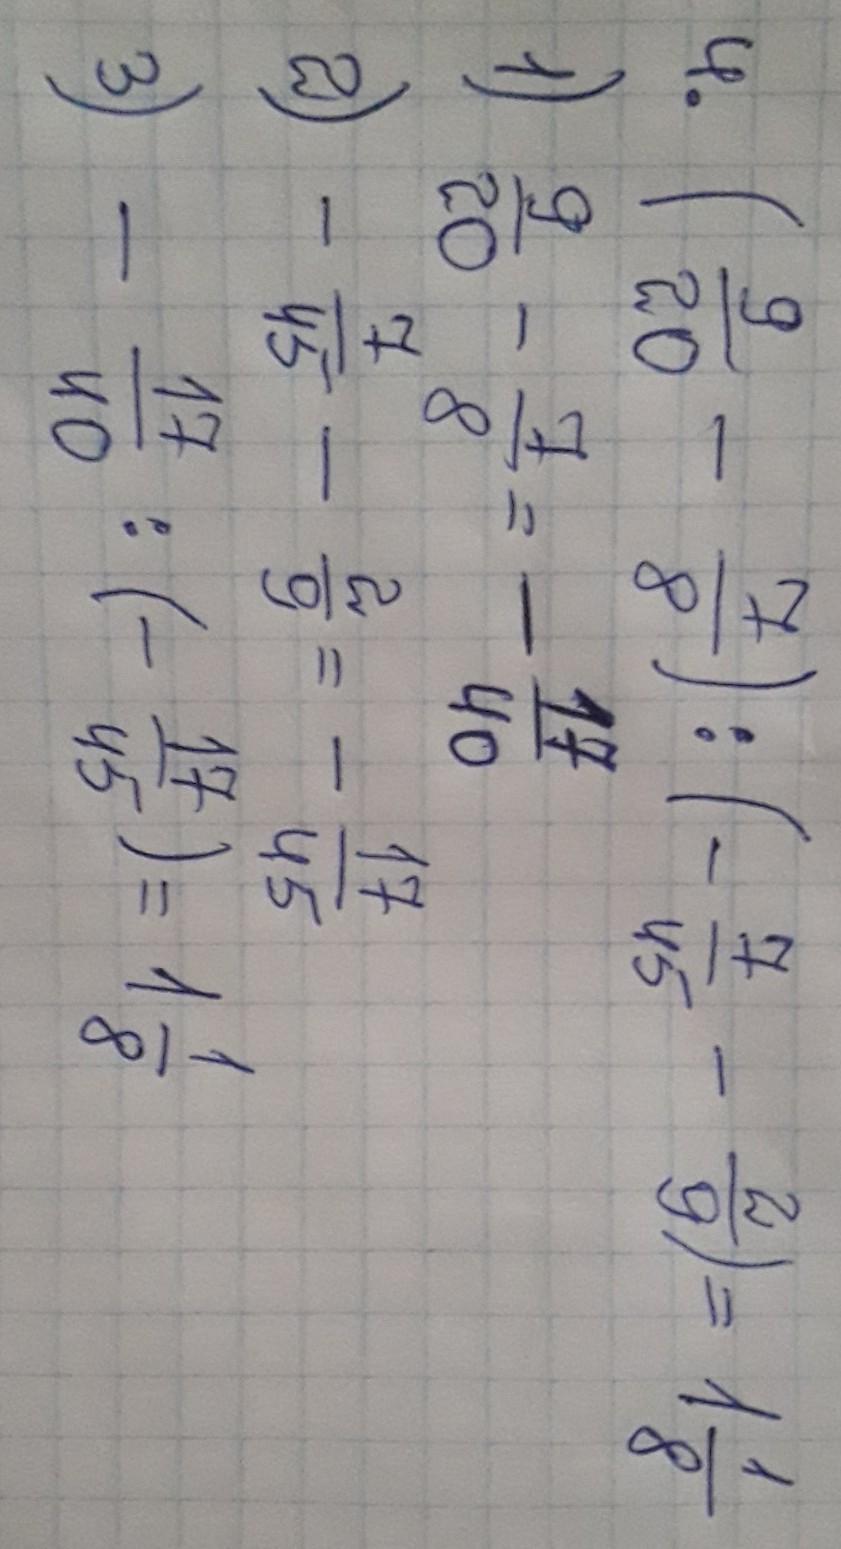 4. (9/20 - 7/8) : (- 7/45 - 2/9) = 1 1/8
1) 9/20 - 7/8 = - 17/40
2) - 7/45 - 2/9 = - 17/45
3) - 17/40 : (- 17/45) = 1 1/8